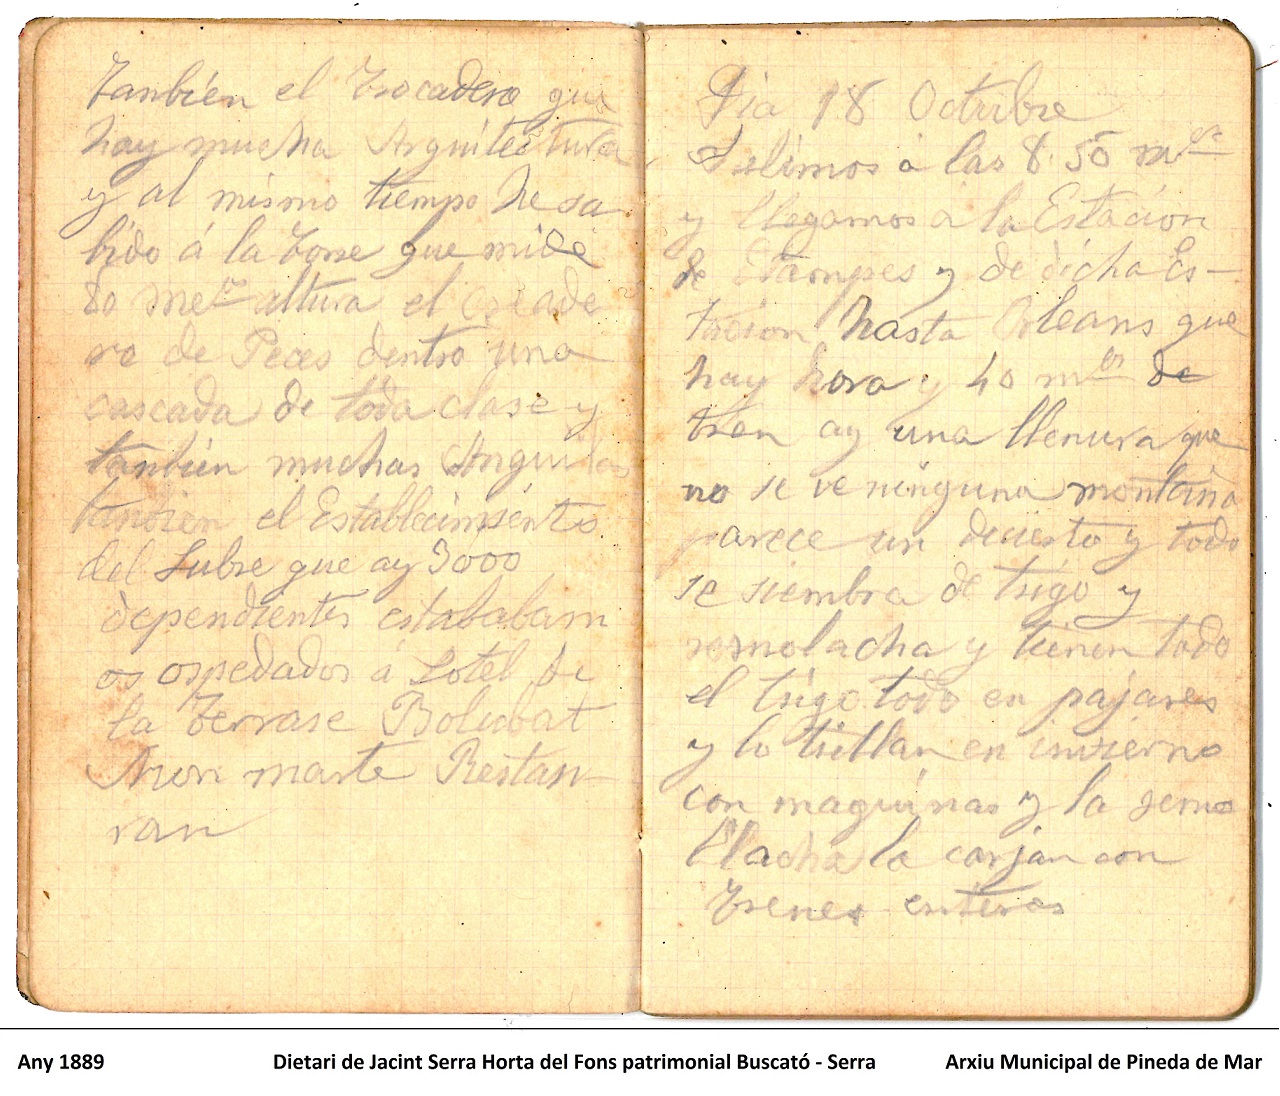 Tanbien el Trocadero que
hay mucha Arquitectura
y al mismo tiempo he sa
bido á la Torre que mide
80 metr altura el Creade
ro de Peces dentro una
cascada de toda clase y
tanbien muchas Anguilas
tanbien el Establecimiento
del Lubre que ay 3000
dependientes estababam
os ospedados á Lotel de
la Terrase Bolubat
Mon marte Restan
ran
Dia 18 Octubre
Salimos a las 8.50 mts
y llegamos a la Estacion
de Etampes y de dicha Es-
tacion hasta Orleans que
hay hora y 40 mts de
tren ay una llenura que
no se ve ninguna montaina
parece un deciesto y todo
se siembra de trigo y
remolacha y tienen todo
el trigo todo en pajares
y lo trillan en invierno
con maquinas y la remo
llacha la carjan con
trenes enteros
Any 1889
Dietari de Jacint Serra Horta del Fons patrimonial Buscató - Serra
Arxiu Municipal de Pineda de Mar